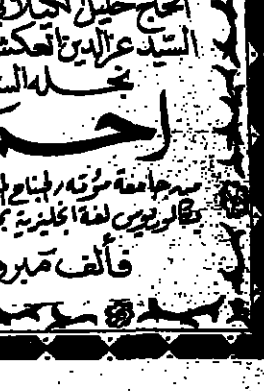 الحاج خليل
السيد عز الدين
نجله الس
احم
من جامعة مؤتة الجناح
بكالوريوس لغة انجليزية
فألف مبرو